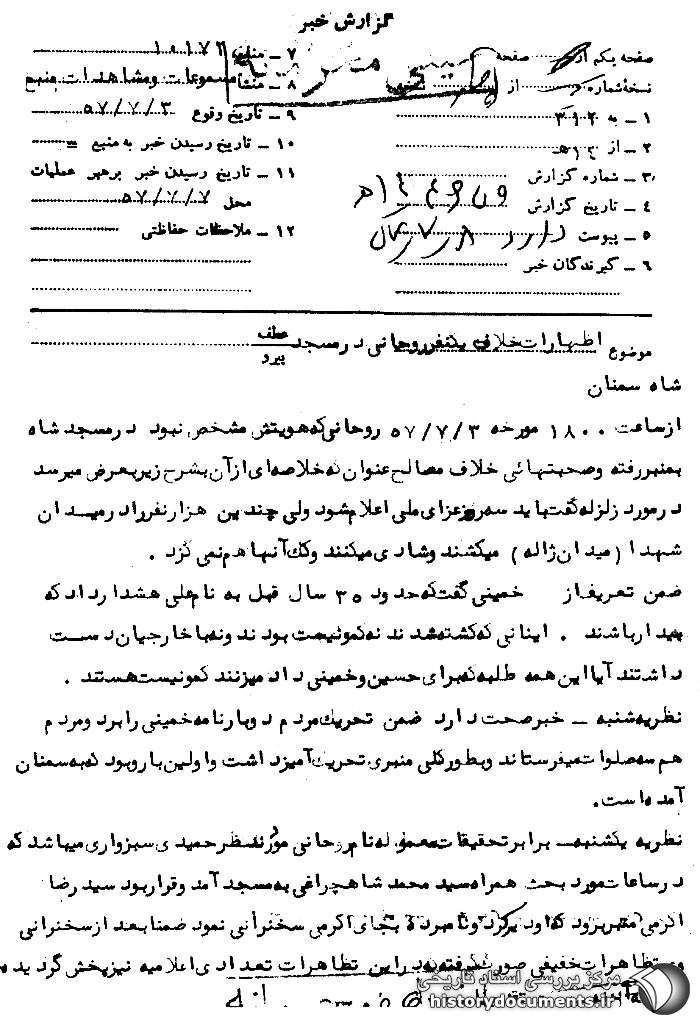 گزارش خبر
صفحه یکم از صفحه
نسخهٔ شماره از
۱ – به ۳۱۲
۲ – از ۱۲ ه‍
۳ – شماره گزارش
۴ – تاریخ گزارش
۵ – پیوست دارد
۶ – گیرندگان خبر
۷ – منبع ۱۰۱۷۲
۸ – منشأ مسموعات ومشاهدات منبع
۹ – تاریخ وقوع ۵۷/۷/۳
۱۰ – تاریخ رسیدن خبر به منبع =
۱۱ – تاریخ رسیدن خبر برهبر عملیات
محل ۵۷/۷/۷
۱۲ – ملاحظات حفاظتی
موضوع اظهارات خلاف یکنفرروحانی درمسجد عطف
پیرو
شاه سمنان
ازساعت ۱۸۰۰ مورخه ۵۷/۷/۳ روحانی که هویتش مشخص نبود درمسجد شاه
بمنبررفته وصحبتهائی خلاف مصالح عنوان که خلاصه ای ازآن بشرح زیربعرض میرسد
درمورد زلزله گفت باید سه روزعزای ملی اعلام شود ولی چندین هزارنفررادرمیدان
شهدا (میدان ژاله) میکشند وشادی میکنند وکک آنها هم نمی گزد .
ضمن تعریف از خمینی گفت که حدود ۳۵ سال قبل به نام علی هشدارداد که
بیدارباشند . اینانی که کشته شدند نه کمونیست بودند ونه با خارجیان دست
داشتند آیا این همه طلبه که برای حسین وخمینی داد میزنند کمونیست هستند .
نظریه شنبه – خبرصحت دارد ضمن تحریک مردم دوبارنام خمینی رابرد ومردم
هم سه صلوات میفرستاند وبطورکلی منبری تحریک آمیزداشت واولین باروبود که به سمنان
آمده است.
نظریه یکشنبه – برابرتحقیقات معموله نام روحانی موردنظرحمیدی سبزواری میباشد که
درساعات مورد بحث همراه سید محمد شاهچراغی به مسجد آمد وقراربود سید رضا
اکرمی منبربرود که اودیرکرد ونامبرده بجای اکرمی سخنرانی نمود ضمنا بعد ازسخنرانی
وی تظاهرات خفیفی صورت گرفته که دراین تظاهرات تعدادی اعلامیه نیزپخش گردید
مرکز بررسی اسناد تاریخی
historydocuments.ir